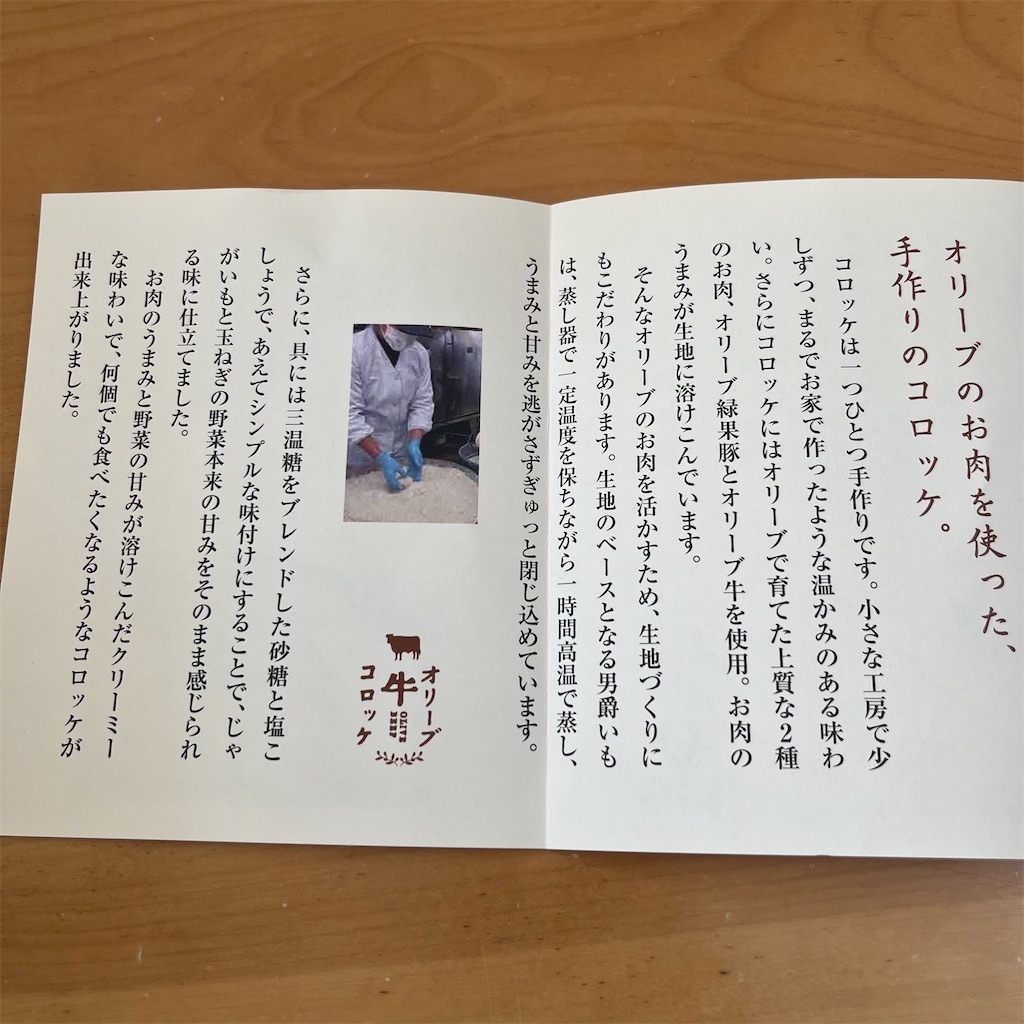 オリーブのお肉を使った、
手作りのコロッケ。
コロッケは一つひとつ手作りです。小さな工房で少
しずつ、まるでお家で作ったような温かみのある味わ
い。さらにコロッケにはオリーブで育てた上質な2種
のお肉、オリーブ緑果豚とオリーブ牛を使用。お肉の
うまみが生地に溶けこんでいます。
そんなオリーブのお肉を活かすため、生地づくりに
もこだわりがあります。生地のベースとなる男爵いも
は、蒸し器で一定温度を保ちながら一時間高温で蒸し、
うまみと甘みを逃がさずぎゅっと閉じ込めています。
オリーブ
牛
OLIVE
BEEF
コロッケ
さらに、具には三温糖をブレンドした砂糖と塩こ
しょうで、あえてシンプルな味付けにすることで、じゃ
がいもと玉ねぎの野菜本来の甘みをそのまま感じられ
る味に仕立てました。
お肉のうまみと野菜の甘みが溶けこんだクリーミー
な味わいで、何個でも食べたくなるようなコロッケが
出来上がりました。